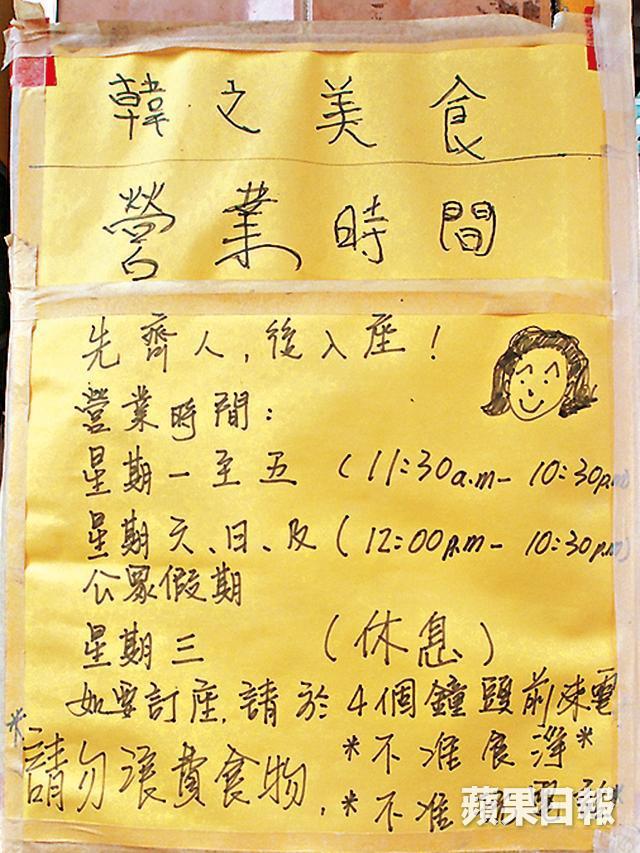 韓之美食
營業時間
先齊人,後入座!
營業時間:
星期一至五 (11:30a.m- 10:30p.m)
星期六、日、及 (12:00p.m- 10:30p.m)
公眾假期
星期三 (休息)
如要訂座,請於4個鐘頭前来電
*請勿浪費食物, *不准食淨*
*不准
蘋果日報